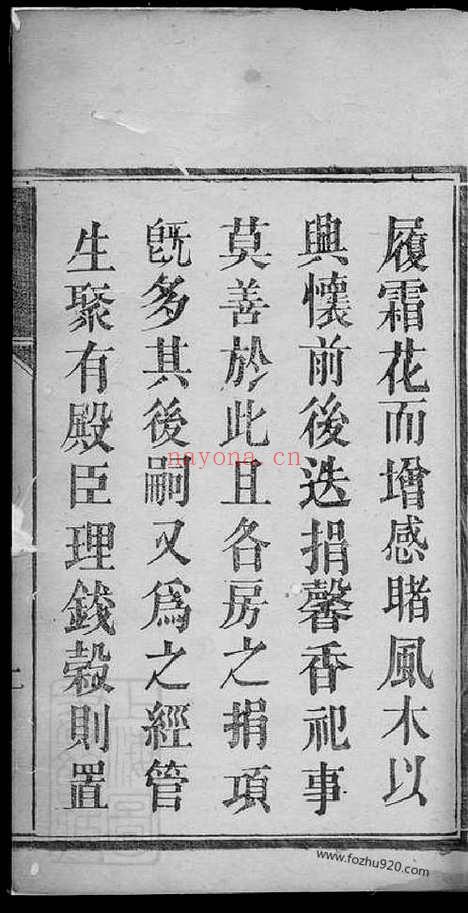 履霜花而增感睹風木以
興懷前後迭捐馨香祀事
莫善於此且各房之捐項
旣多其後嗣又爲之經管
生聚有殿臣理錢穀則置
nayona.cn
www.fozhu920.com